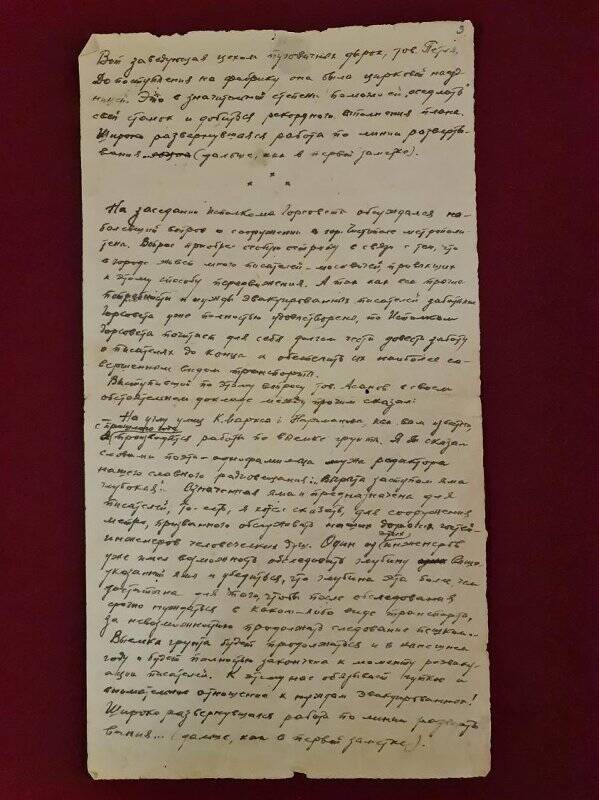 3
Вот заведующая цехом пуговичных дырок, тов. Петля.
До поступления на фабрику она была царковой над
ницей. Это в значительной степени помогло ей оседлать
свой станок и добиться рекордного выполнения плана.
Широко развернувшаяся работа по линии развёрты-
вания (дальше, как в первой заметке).
* * *
На заседании Исполкома Горсовета обсуждался на-
болевший вопрос о сооружении в гор. Чистополе метрополи-
тена. Вопрос приобрел остроту в связи с тем, что
в городе живёт много писателей-москвичей, привыкших
к этому способу передвижения. А так как все прочие
потребности и нужды эвакуированных писателей заботами
Горсовета уже полностью удовлетворены, то Исполком
Горсовета почитает для себя долгом чести довести заботу
о писателях до конца и обеспечить их наиболее со-
вершенным видом транспорта.
Выступивший по этому вопросу тов. Асанов в своем
обстоятельном докладе между прочим сказал:
На углу улиц К. Маркса и Нариманова, как вам известно,
с прошлого года производятся работы по выемке грунта. Я бы сказал
словами поэта - однофамильца мужа редактора
нашего славного радиовещания: "Вырыта заступом яма
глубокая". Означенная яма и предназначена для
писателей, то-есть, я хотел сказать, для сооружения
метро, призванного обслуживать наших дорогих гостей-
инженеров человеческих душ. Один из этих инженеров
уже имел возможность обследовать глубину выше-
указанной ямы и убедиться, что глубина эта более чем
достаточна для того, чтобы после обследования
срочно нуждаться в каком-либо виде транспорта,
за невозможностью продолжать следование пешком...
Выемка грунта будет продолжаться и в нынешнем
году и будет полностью закончена к моменту реэваку-
ации писателей. К этому нас обязывает чуткое и
внимательное отношение к нуждам эвакуированных!
Широко развернувшаяся работа по линии развёрты-
вания... (дальше, как в первой заметке).